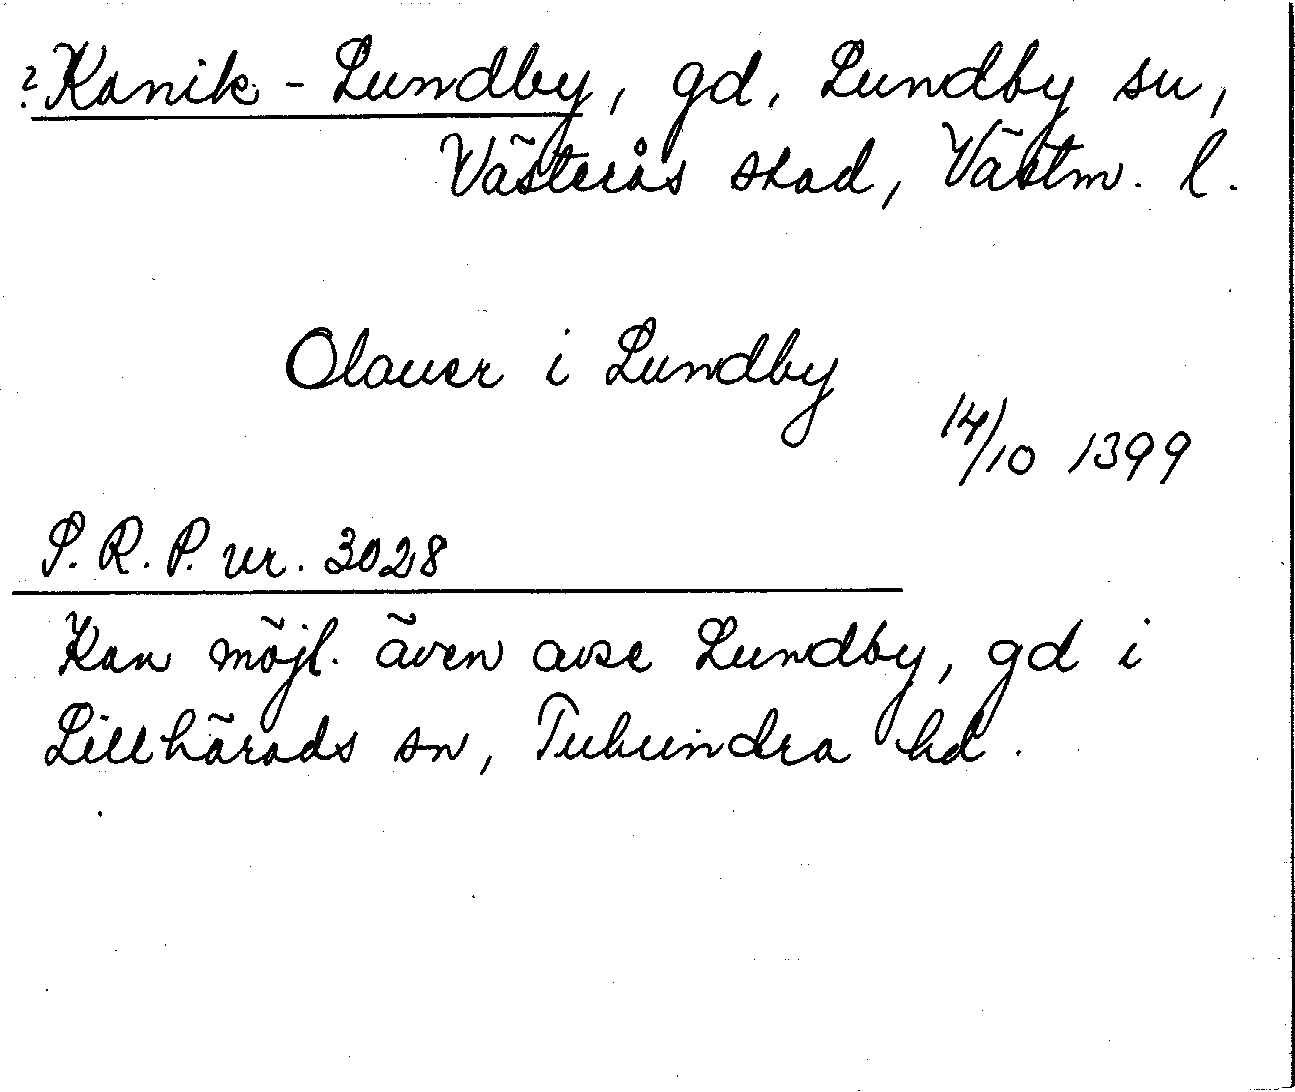 ? Kanik-Lundby, gd, Lundby sn,
Västerås stad, Västm. l.
Olauer i Lundby
14/10 1399
S.R.P. nr. 3028
Kan möjl. även avse Lundby, gd i
Lillhärads sn, Tuhundra hd.